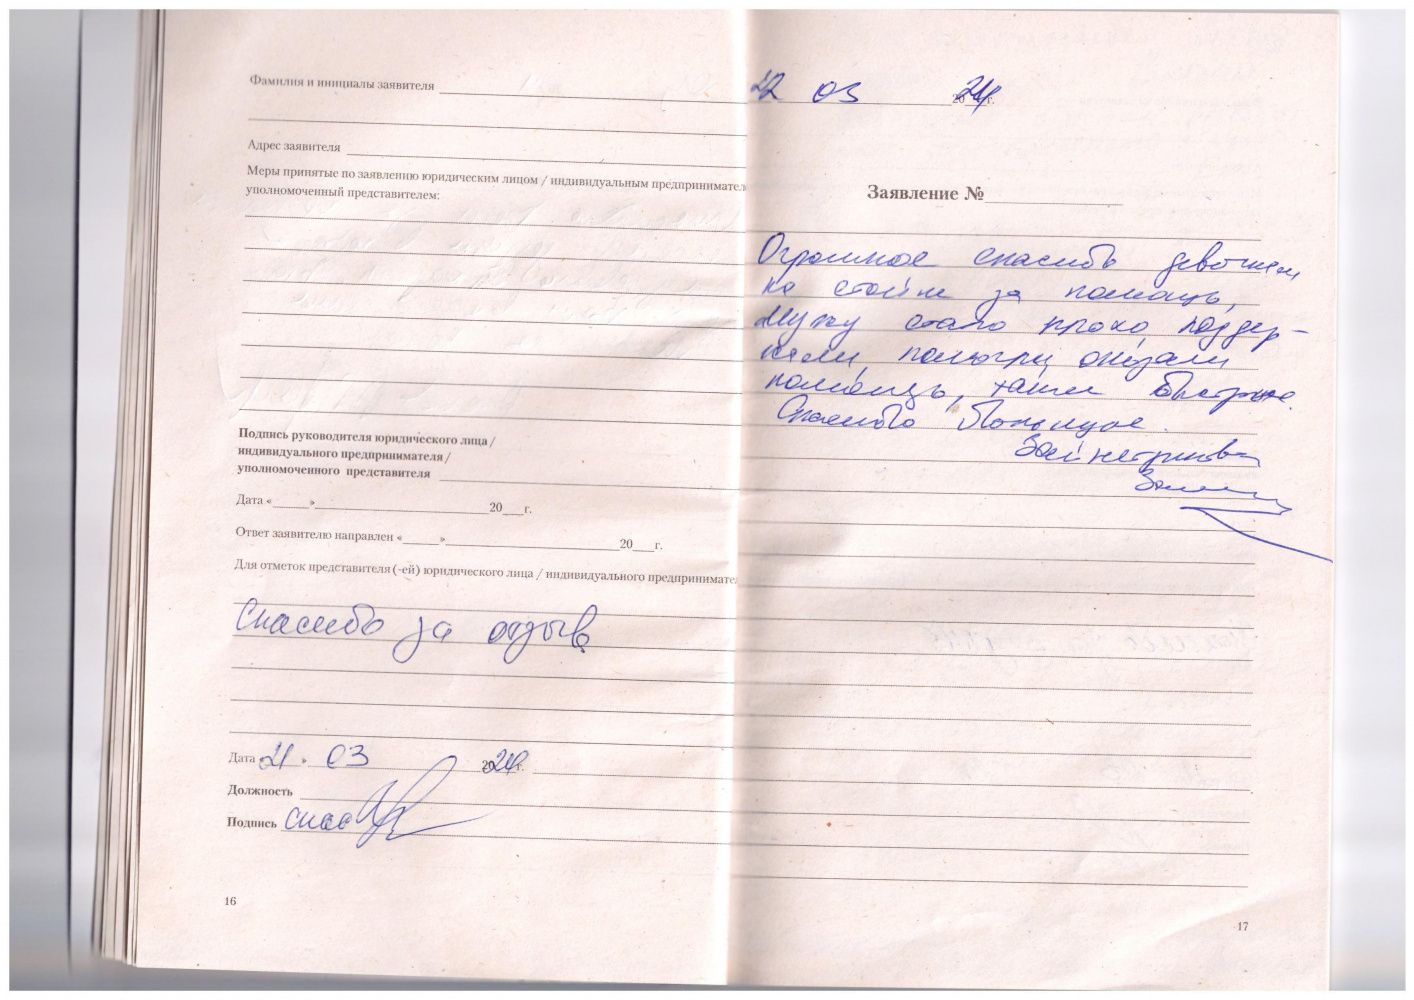 Фамилия и инициалы заявителя
Адрес заявителя
Меры принятые по заявлению юридическим лицом / индивидуальным предпринимател
уполномоченный представителем:
Подпись руководителя юридического лица /
индивидуального предпринимателя /
уполномоченного представителя
Дата «______»____________________________20___г.
Ответ заявителю направлен «______»____________________________20___г.
Для отметок представителя (-ей) юридического лица / индивидуального предпринимател
Спасибо за отзыв
Дата 21. 03 2024г.
Должность
Подпись
16
22 03 2024г.
Заявление №
Огромное спасибо девочкам
на стойке за помощь,
Мужу стало плохо, поддер-
жали, помогли, оказали
помощь, такие быстрые.
Спасибо большое.
17